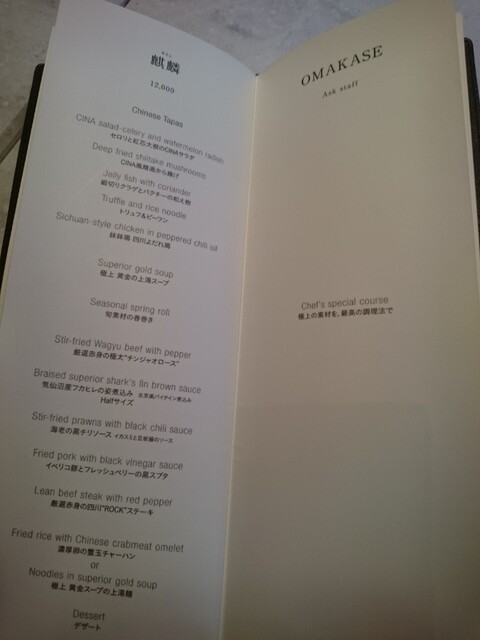 麒麟
12,000
Chinese Tapas
CINA salad-celery and watermelon radish
セロリと紅芯大根のCINAサラダ
Deep fried shiitake mushrooms
CINA風椎茸から揚げ
Jelly fish with coriander
細切りクラゲとパクチーの和え物
Truffle and rice noodle
トリュフ&ビーフン
Sichuan-style chicken in peppered chili oil
妹妹鶏 四川よだれ鶏
Superior gold soup
極上 黄金の上湯スープ
Seasonal spring roll
旬素材の春巻き
Stir-fried Wagyu beef with pepper
厳選赤身の極太"チンジャオロース"
Braised superior shark's fin brown sauce
気仙沼産フカヒレの姿煮込み 北京風パイタイン煮込み
Halfサイズ
Stir-fried prawns with black chili sauce
海老の黒チリソース イカスミと豆板醤のソース
Fried pork with black vinegar sauce
イベリコ豚とフレッシュベリーの黒スブタ
Lean beef steak with red pepper
厳選赤身の四川"ROCK"ステーキ
Fried rice with Chinese crabmeat omelet
濃厚卵の蟹玉チャーハン
or
Noodles in superior gold soup
極上 黄金スープの上湯麺
Dessert
デザート
OMAKASE
Ask staff
Chef's special course
極上の素材を、最高の調理法で